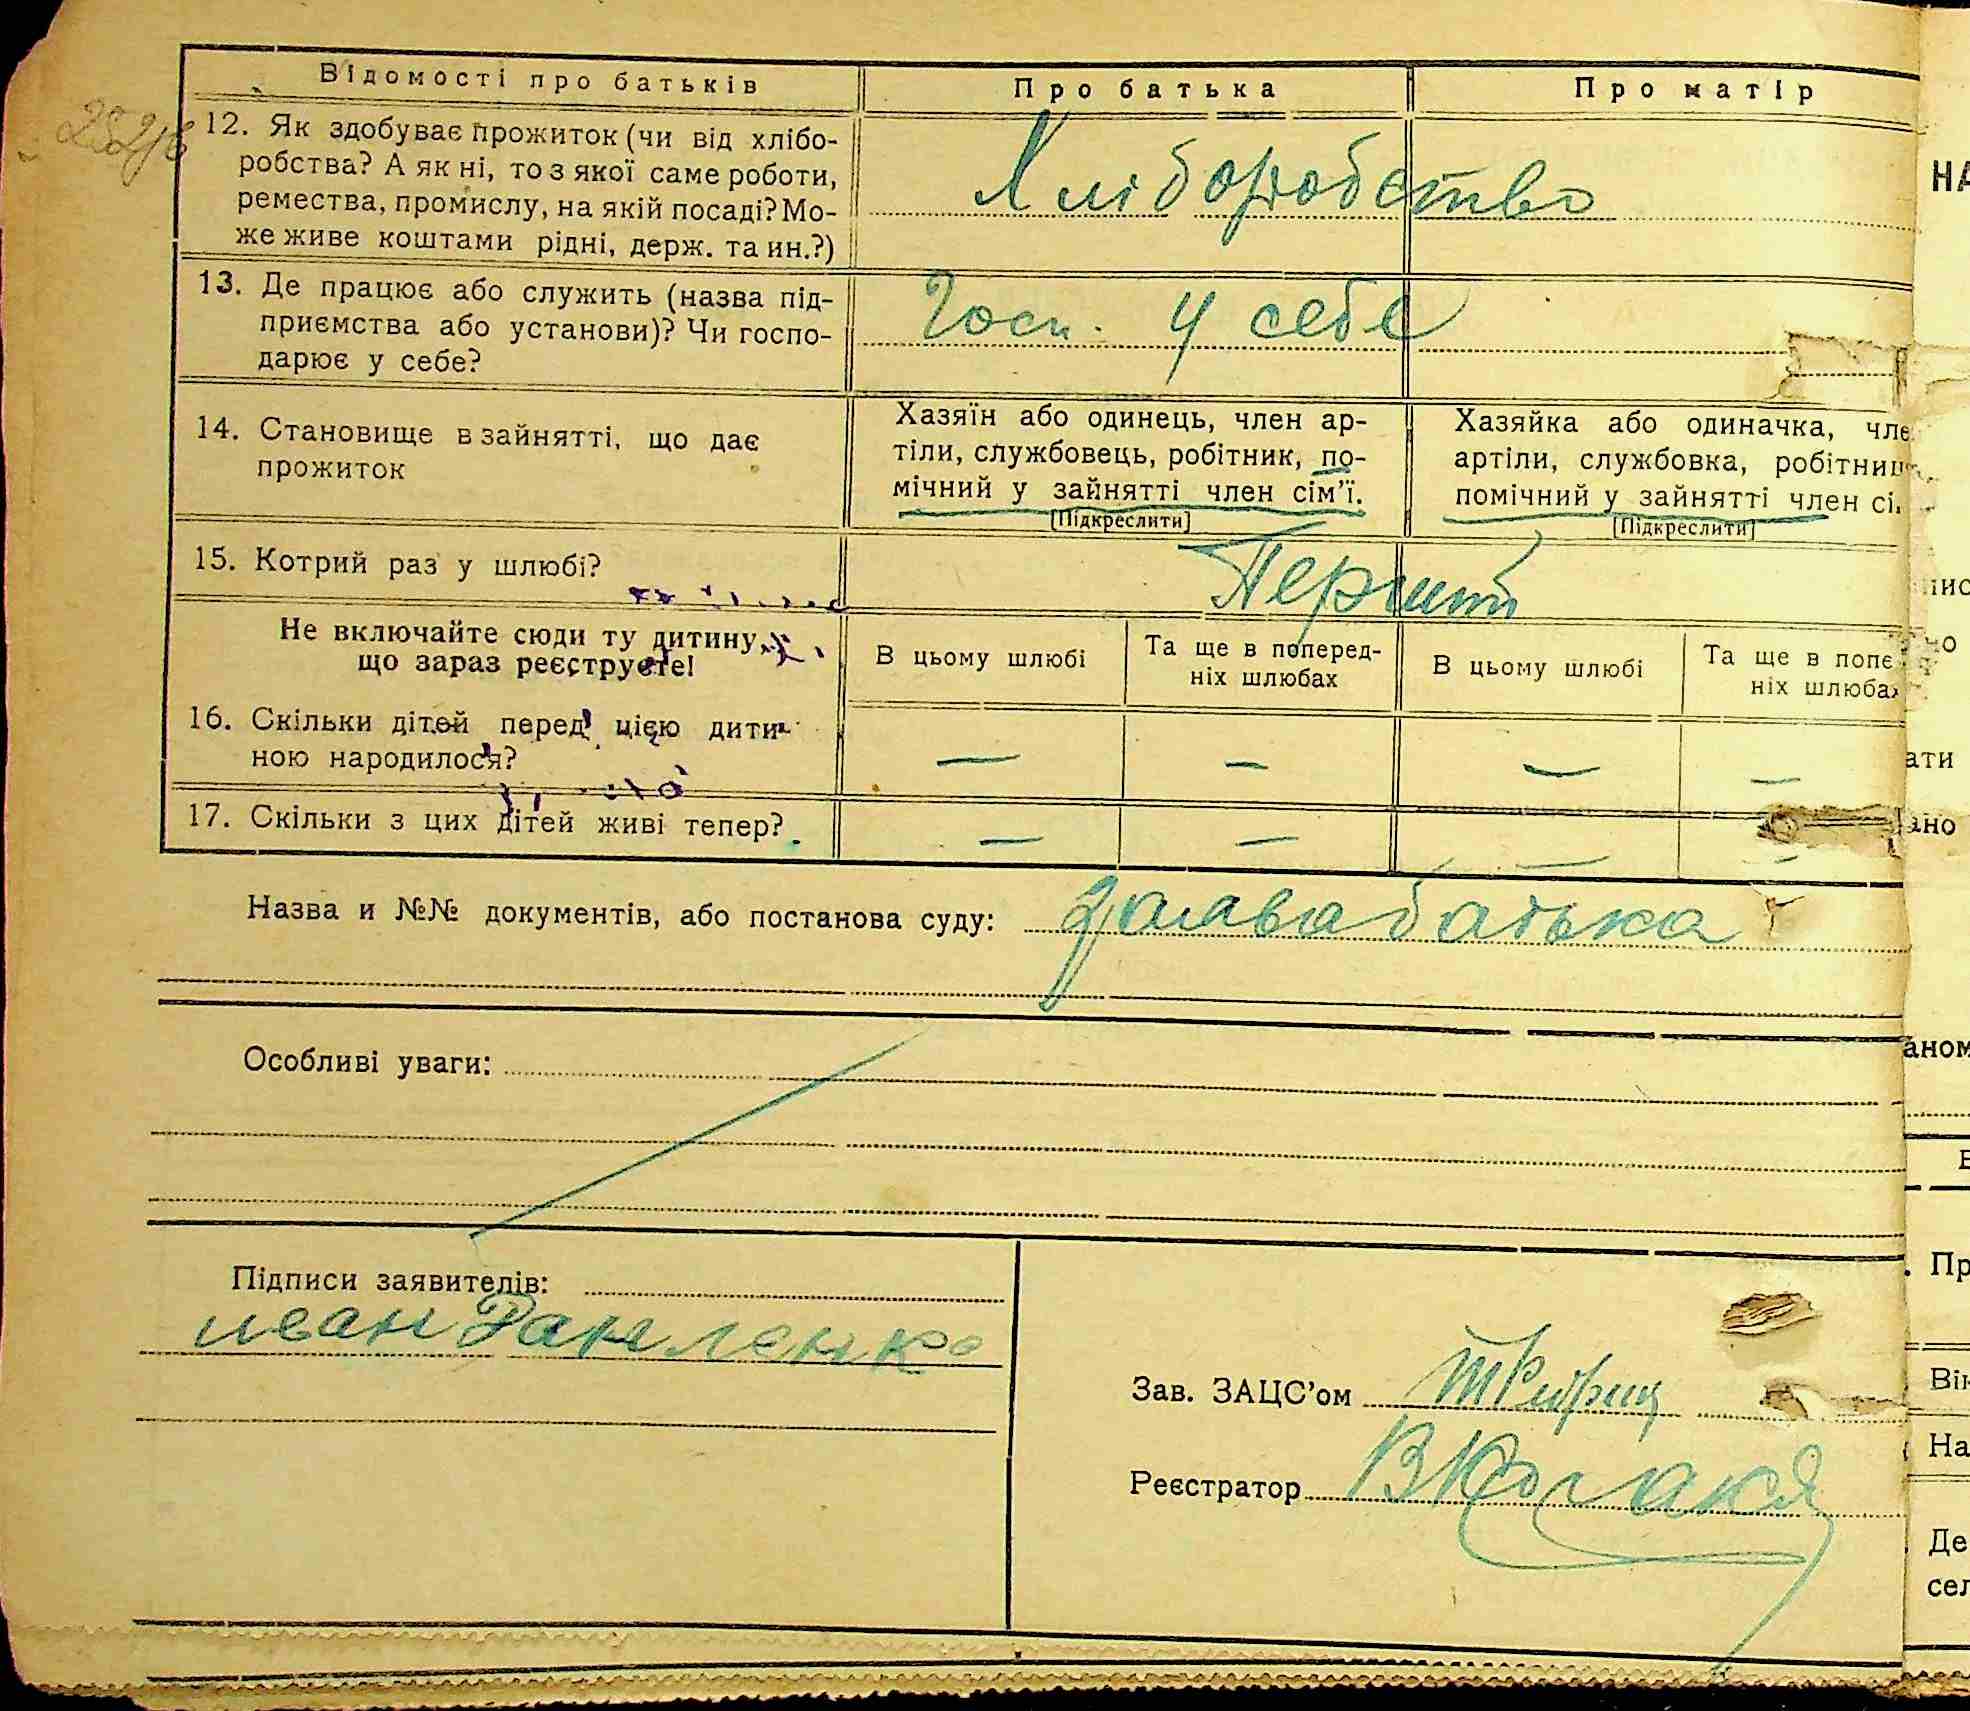 Відомості про батьків Про батька Про матір
12. Як здобуває прожиток (чи від хлібо-
робства? А як ні, то з якої саме роботи,
ремества, промислу, на якій посаді? Мо-
же живе коштами рідні, держ. та ин.?)
Хліборобство
13. Де працює або служить (назва під-
приємства або установи)? Чи госпо-
дарює у себе?
Госп. у себе
14. Становище в зайнятті, що дає
прожиток
Хазяїн або одинець, член ар-
тіли, службовець, робітник, по-
мічний у зайнятті член сім'ї.
[Підкреслити]
Хазяйка або одиначка, чле
артіли, службовка, робітниц
помічний у зайнятті член сі.
[Підкреслити]
15. Котрий раз у шлюбі?
Перший
Не включайте сюди ту дитину,
що зараз реєструєте!
В цьому шлюбі
Та ще в поперед-
ніх шлюбах
В цьому шлюбі
Та ще в попе
ніх шлюбах
16. Скільки дітей перед цією дити-
ною народилося?
— — — —
17. Скільки з цих дітей живі тепер?
— — — —
Назва и №№ документів, або постанова суду: заява батька
Особливі уваги:
Підписи заявителів:
иван Данленко
Зав. ЗАЦС'ом
Реєстратор
НА
пис
но
ати
ано
аном
Пр
Вік
На
Де
сел